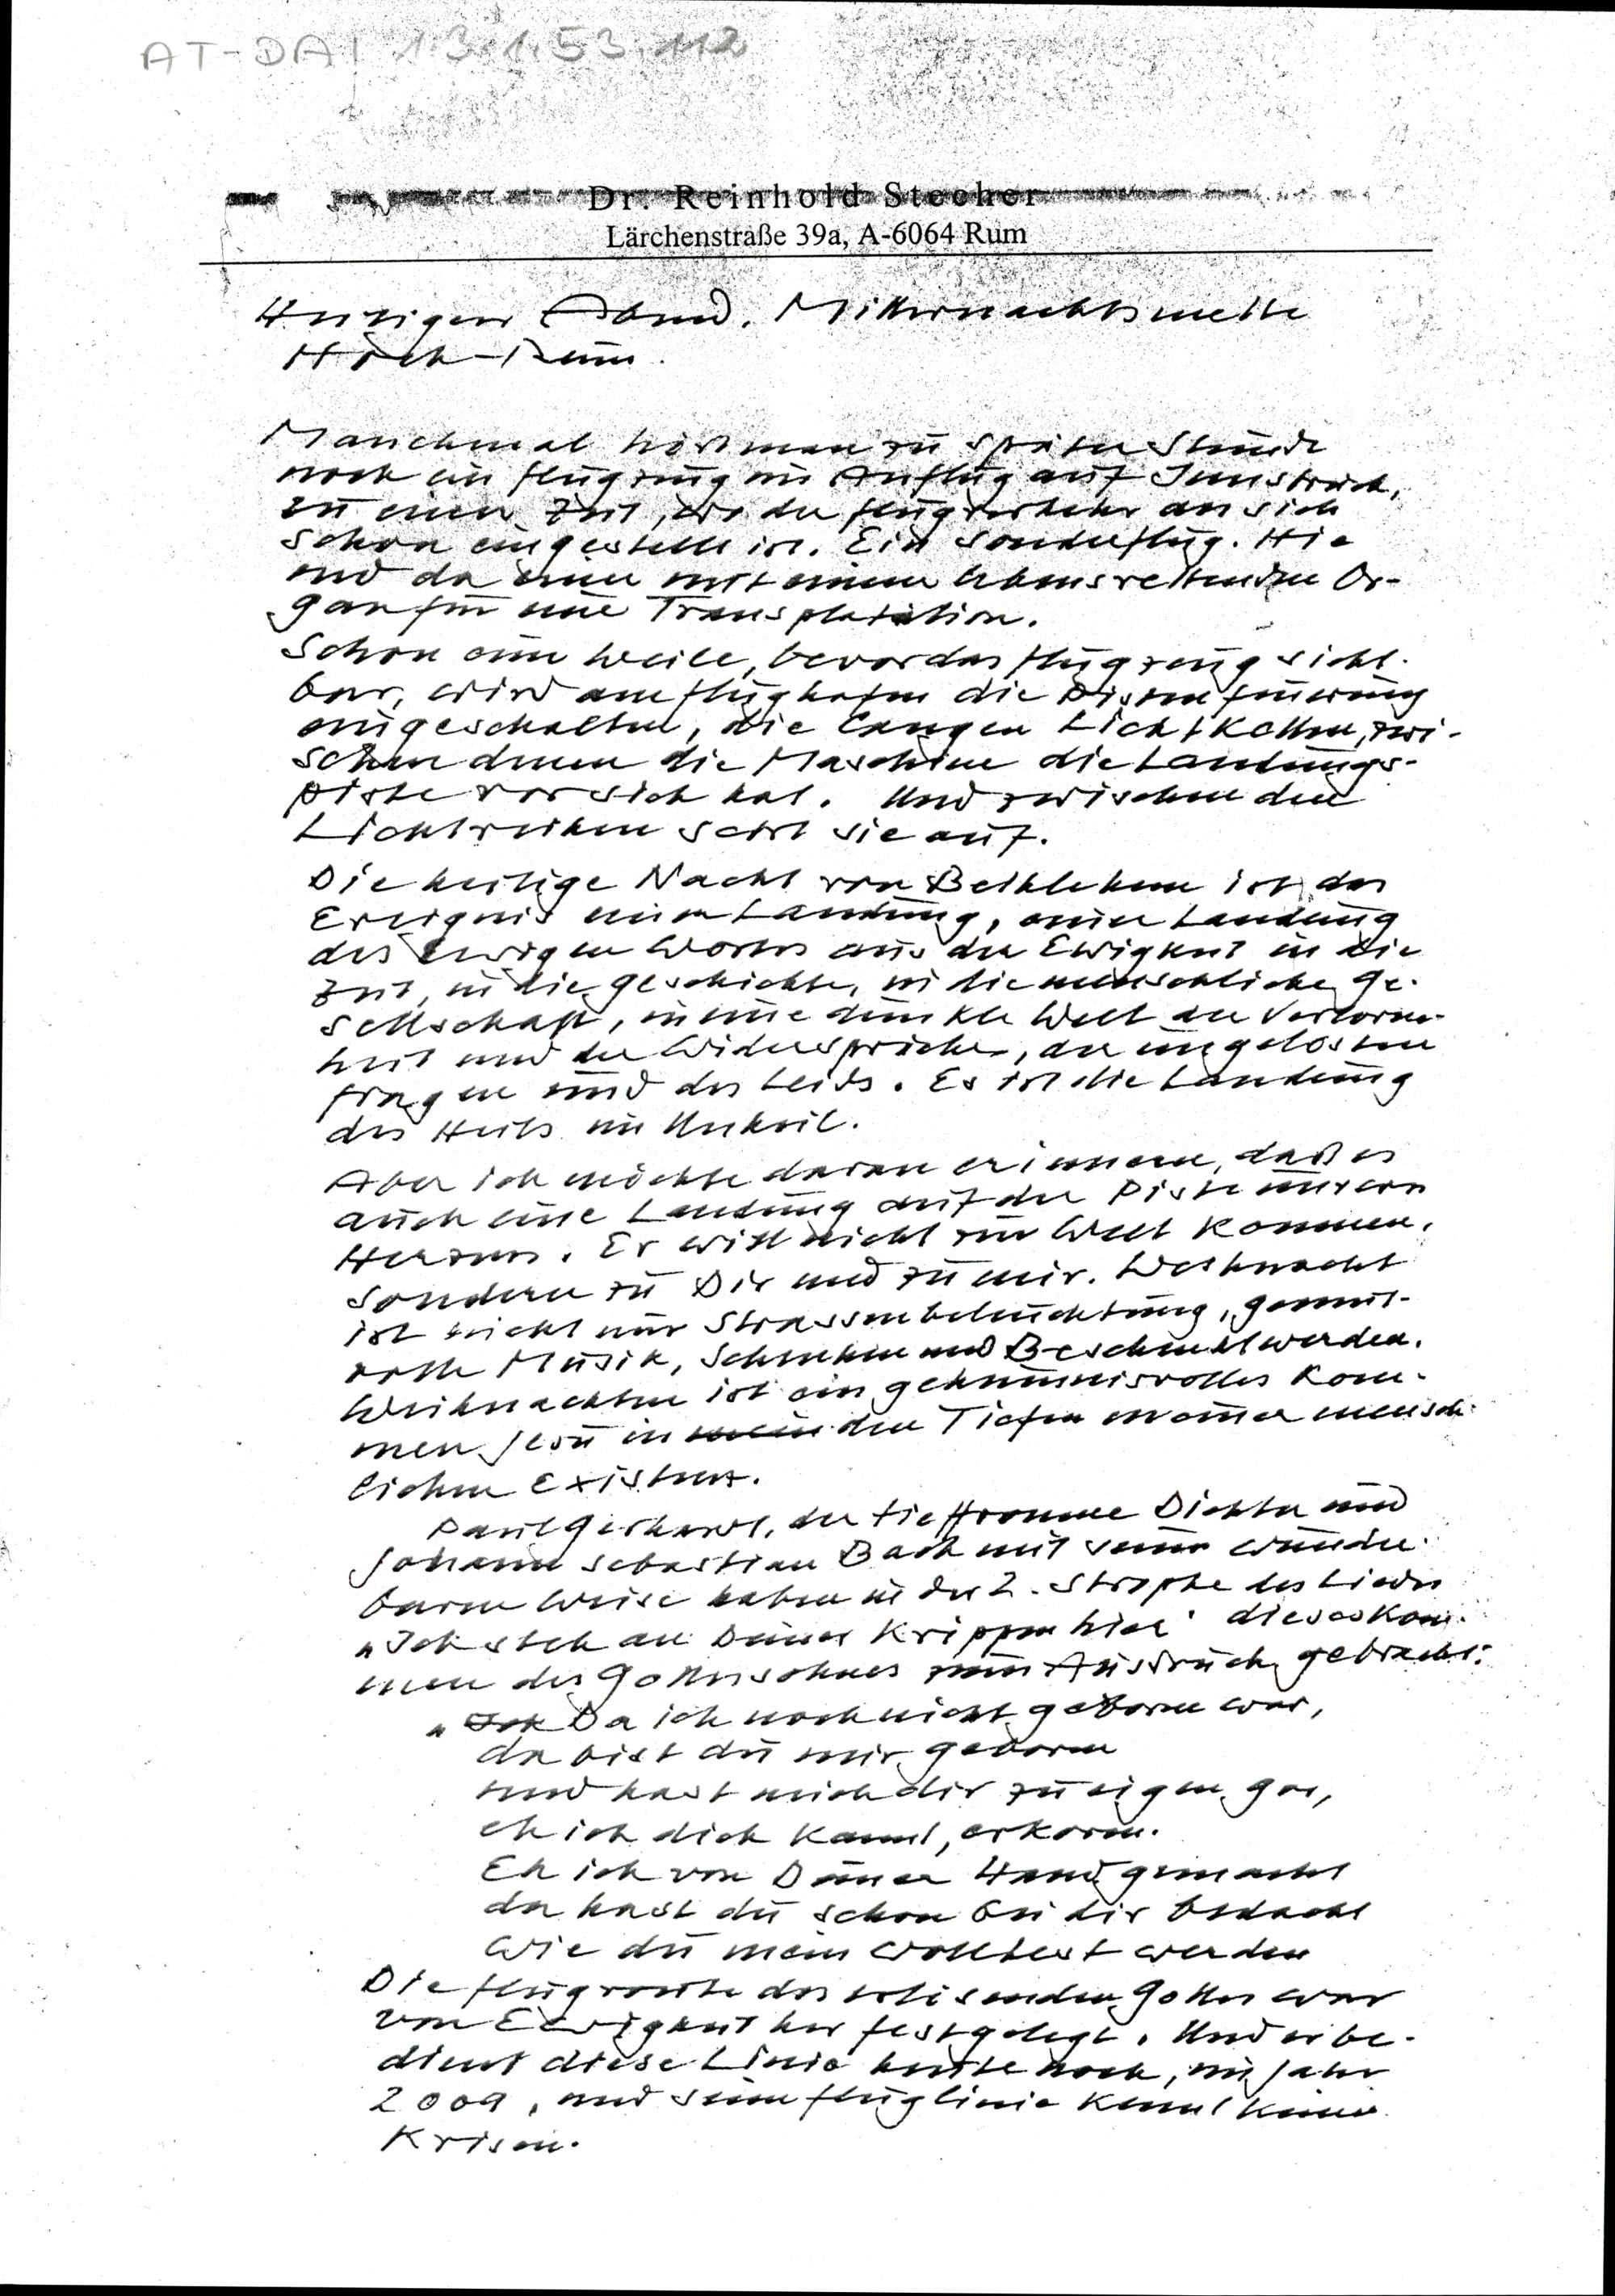 AT-DAI 1.3.1.53.112
Dr. Reinhold Stecher
Lärchenstraße 39a, A-6064 Rum
Heiliger Abend. Mitternachtsmette
Hoch-Rum.
Manchmal hört man zu später Stunde
noch ein Flugzeug im Anflug auf Innsbruck,
zu einer Zeit, wo der Flugverkehr an sich
schon eingestellt ist. Ein Sonderflug. Hie
und da einer mit einem lebensrettenden Or-
gan für eine Transplatation.
Schon eine Weile, bevor das Flugzeug sicht-
bar, wird am Flughafen die Pistenfeuerung
eingeschaltet, die langen Lichtketten, zwi-
schen denen die Maschine die Landungs-
piste vor sich hat. Und zwischen den
Lichtreihen setzt sie auf.
Die heilige Nacht von Bethlehem ist das
Ereignis einer Landung, einer Landung
des Ewigen Wortes aus der Ewigkeit in die
Zeit, in die Geschichte, in die menschliche Ge-
sellschaft, in eine dunkle Welt der Verloren-
heit und der Widersprüche, der ungelösten
Fragen und des Leids. Es ist die Landung
des Heils im Unheil.
Aber ich möchte daran erinnern, daß es
auch eine Landung auf der Piste unseres
Herzens. Er will nicht zur Welt kommen,
sondern zu Dir und zu mir. Weihnacht
ist nicht nur Strassenbeleuchtung, gemüt-
volle Musik, Schenken und Beschenktwerden.
Weihnachten ist ein geheimnisvolles Kom-
men Jesu in mein den Tiefen meiner mensch-
lichen Existenz.
Paul Gerhardt, der tieffromme Dichter und
Johann Sebastian Bach mit seiner wunder-
baren Weise haben in der 2. Strophe des Liedes
„Ich steh an Deiner Krippen hier" dieses Kom-
men des Gottessohnes zum Ausdruck gebracht:
„Ich Da ich noch nicht geboren war,
da bist du mir geboren
und hast mich dir zu eigen gar,
eh ich dich kannt, erkoren.
Eh ich von Deiner Hand gemacht
da hast du schon bei dir bedacht
wie du mein wolltest werden
Die Flugroute des erlösenden Gottes war
von Ewigkeit her festgelegt. Und er be-
dient diese Linie heute noch, im Jahr
2009, und seine Fluglinie kennt keine
Krisen.